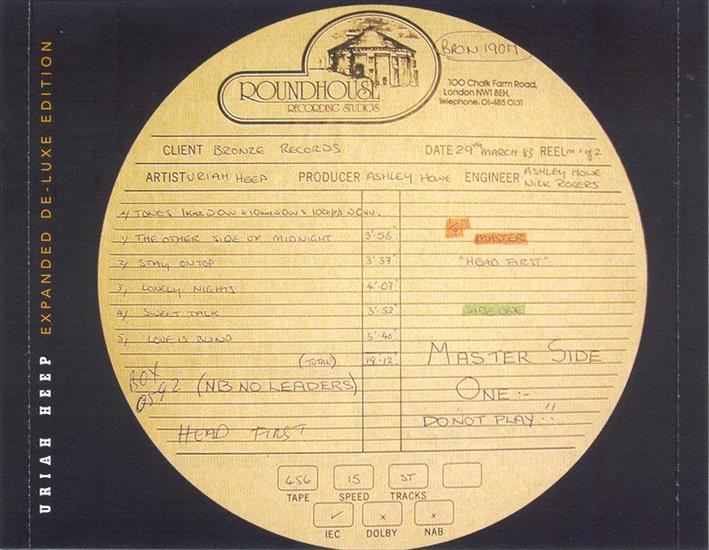 URIAH HEEP EXPANDED DE-LUXE EDITION
BRON 190M
ROUNDHOUSE
RECORDING STUDIOS
100 Chalk Farm Road,
London NW1 8EH,
Telephone: 01-485 0131
CLIENT BRONZE RECORDS DATE 29TH MARCH 83 REEL Nº 1 of 2
ARTIST URIAH HEEP PRODUCER ASHLEY HOWE ENGINEER ASHLEY HOWE
NICK ROGERS
TONES 1KHz
1/ THE OTHER SIDE OF MIDNIGHT 3'56" MASTER
2/ STAY ON TOP 3'37" "HEAD FIRST"
3/ LONELY NIGHTS 4'07"
4/ SWEET TALK 3'52" SIDE ONE
5/ LOVE IS BLIND 3'40"
(TOTAL) 19'12"
MASTER SIDE
ONE:-
DO NOT PLAY!!
BOX
0592 (NB NO LEADERS)
HEAD FIRST
456 15 ST
TAPE SPEED TRACKS
✓ x x
IEC DOLBY NAB